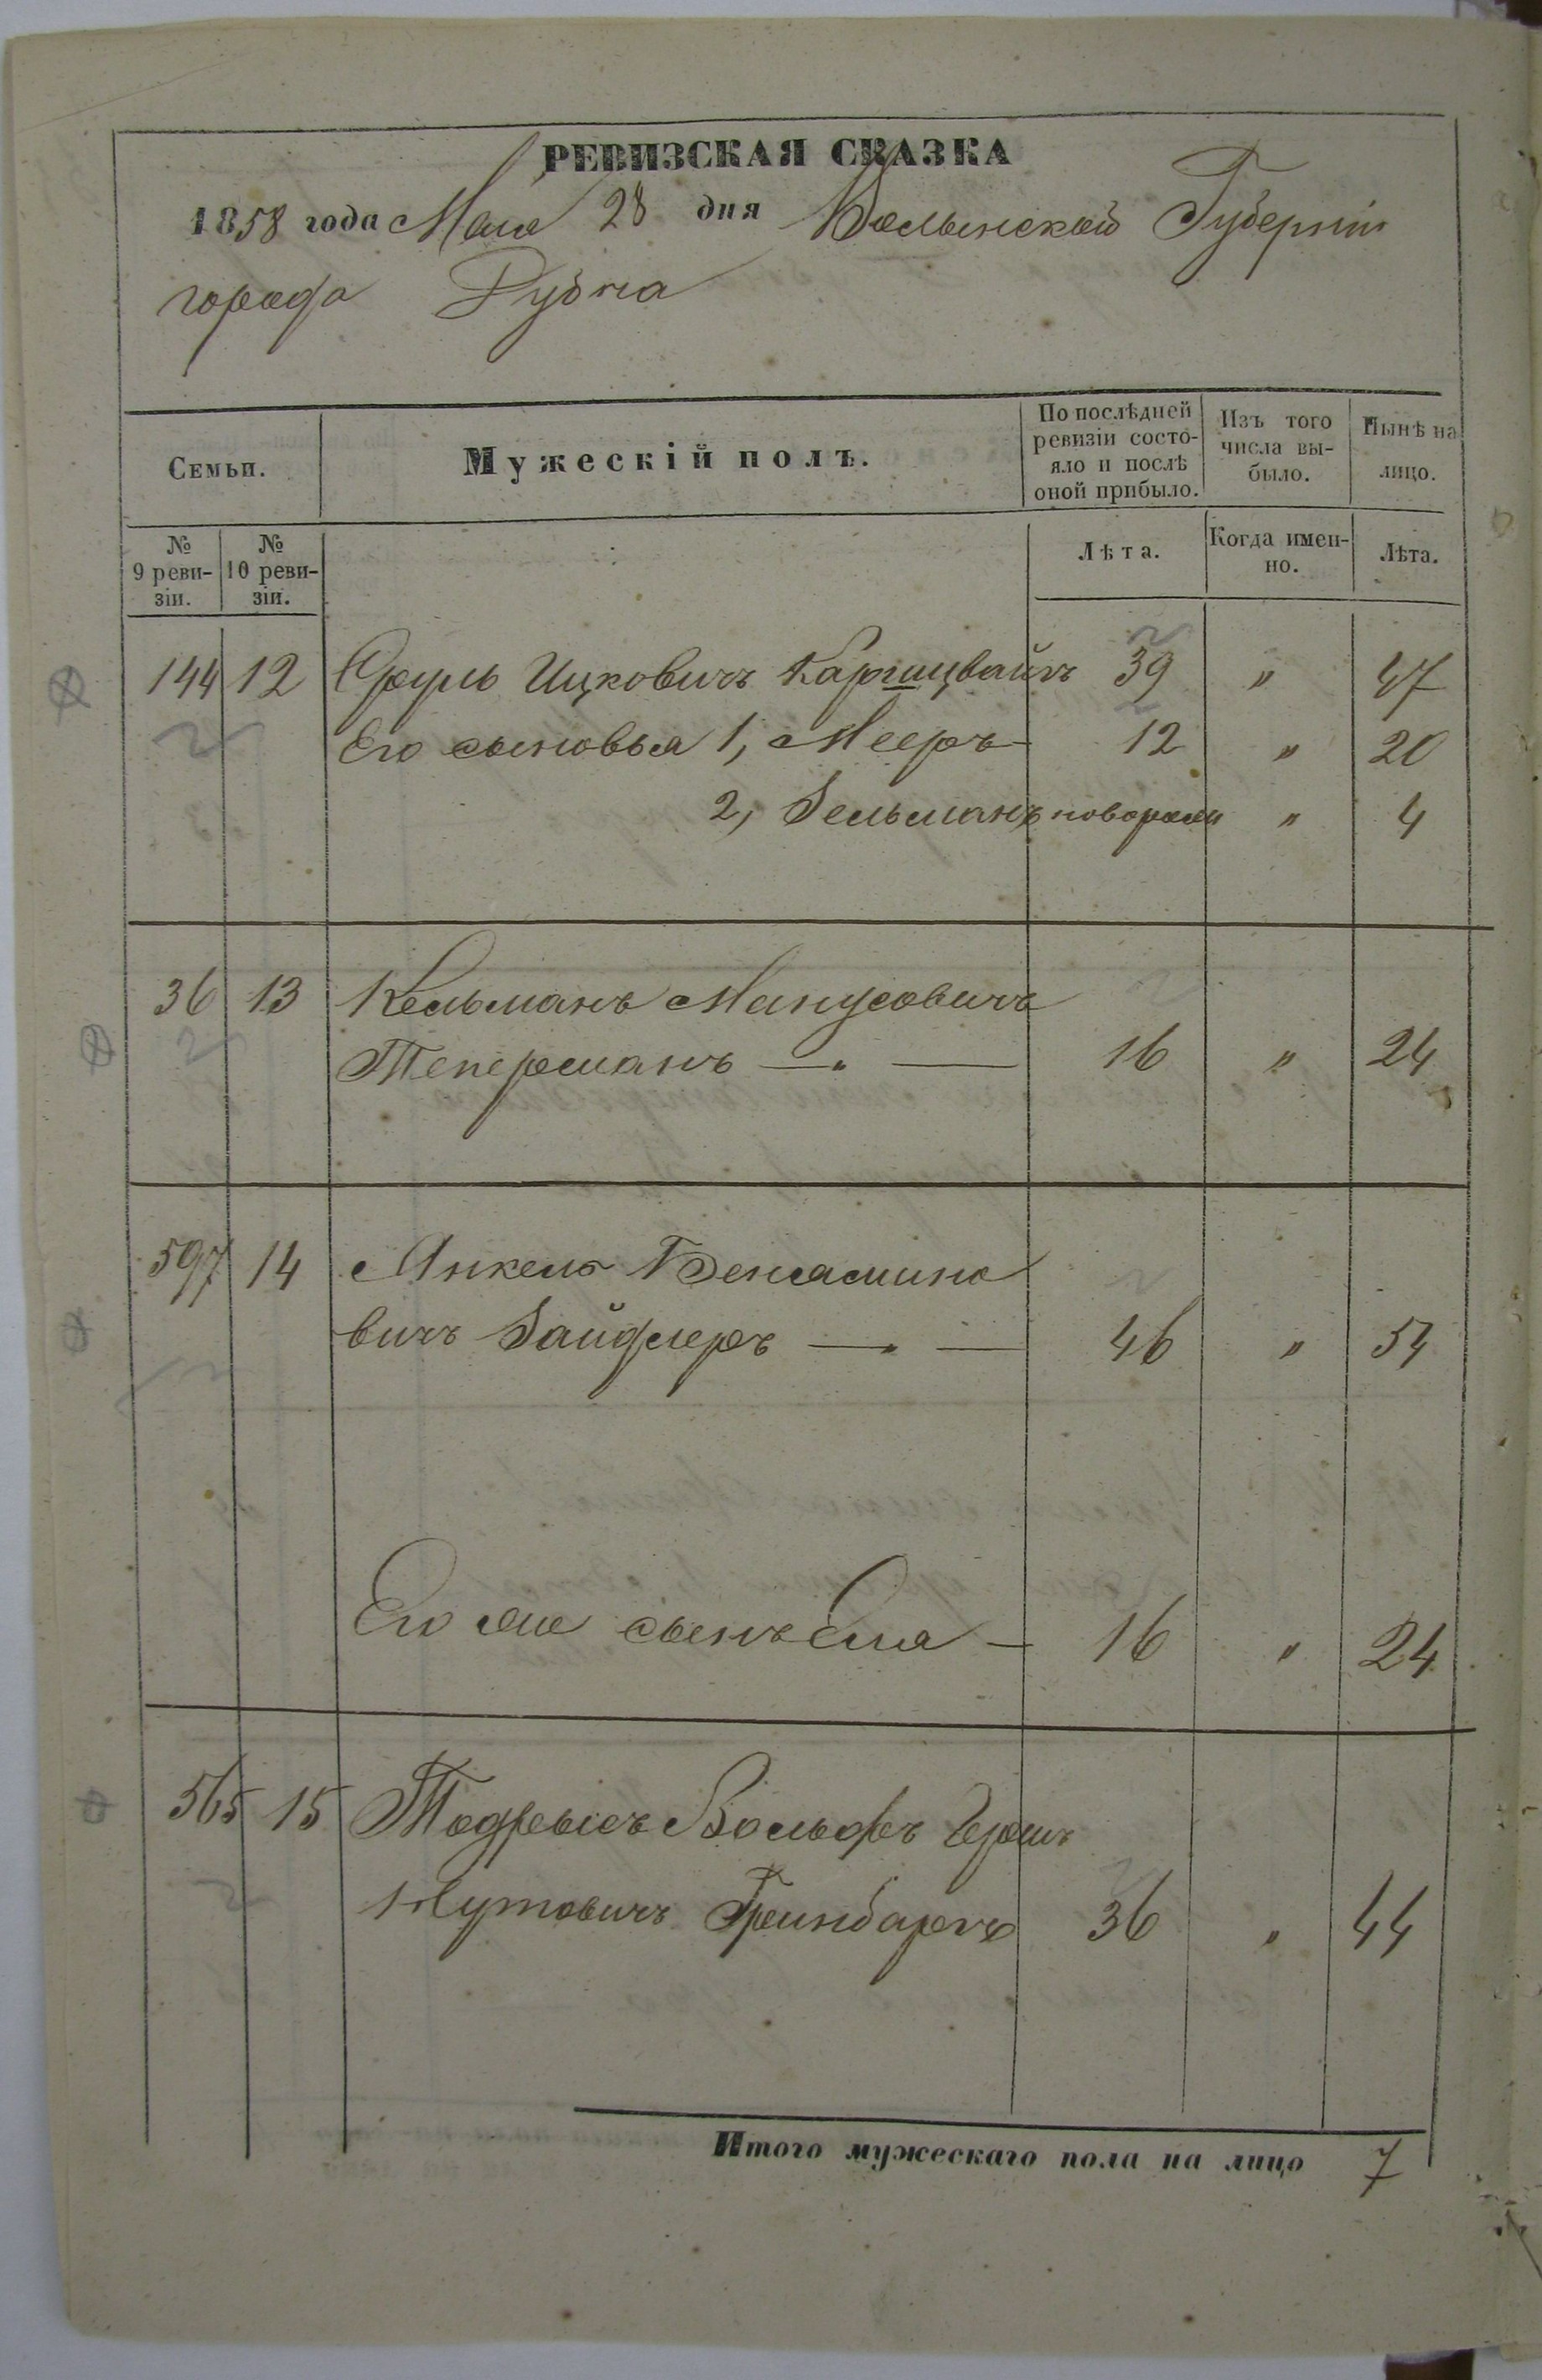 РЕВИЗСКАЯ СКАЗКА
1858 года Мая 28 дня Волынской Губерніи
города Дубна
Семьи.
Мужескій полъ.
По послѣдней ревизіи состо-
яло и послѣ оной прибыло.
Изъ того числа вы-
было.
Нынѣ на лицо.
№ 9 реви-
зіи.
№ 10 реви-
зіи.
Лѣта.
Когда имен-
но.
Лѣта.
144 12 Сруль Ицковичъ 39 " 47
Его сыновья 1, Мееръ 12 " 20
2, Зельманъ новорожд " 4
36 13 Кельманъ Манусовичъ
Теперманъ — " — 16 " 24
597 14 Янкель Бенямино
вичъ Зайдлеръ — " — 46 " 54
Его же сынъ Еля — 16 " 24
565 15 Тодрысъ Вольфъ Гершъ
Мутовичъ Гринбаргъ 36 " 44
Итого мужескаго пола на лицо 7